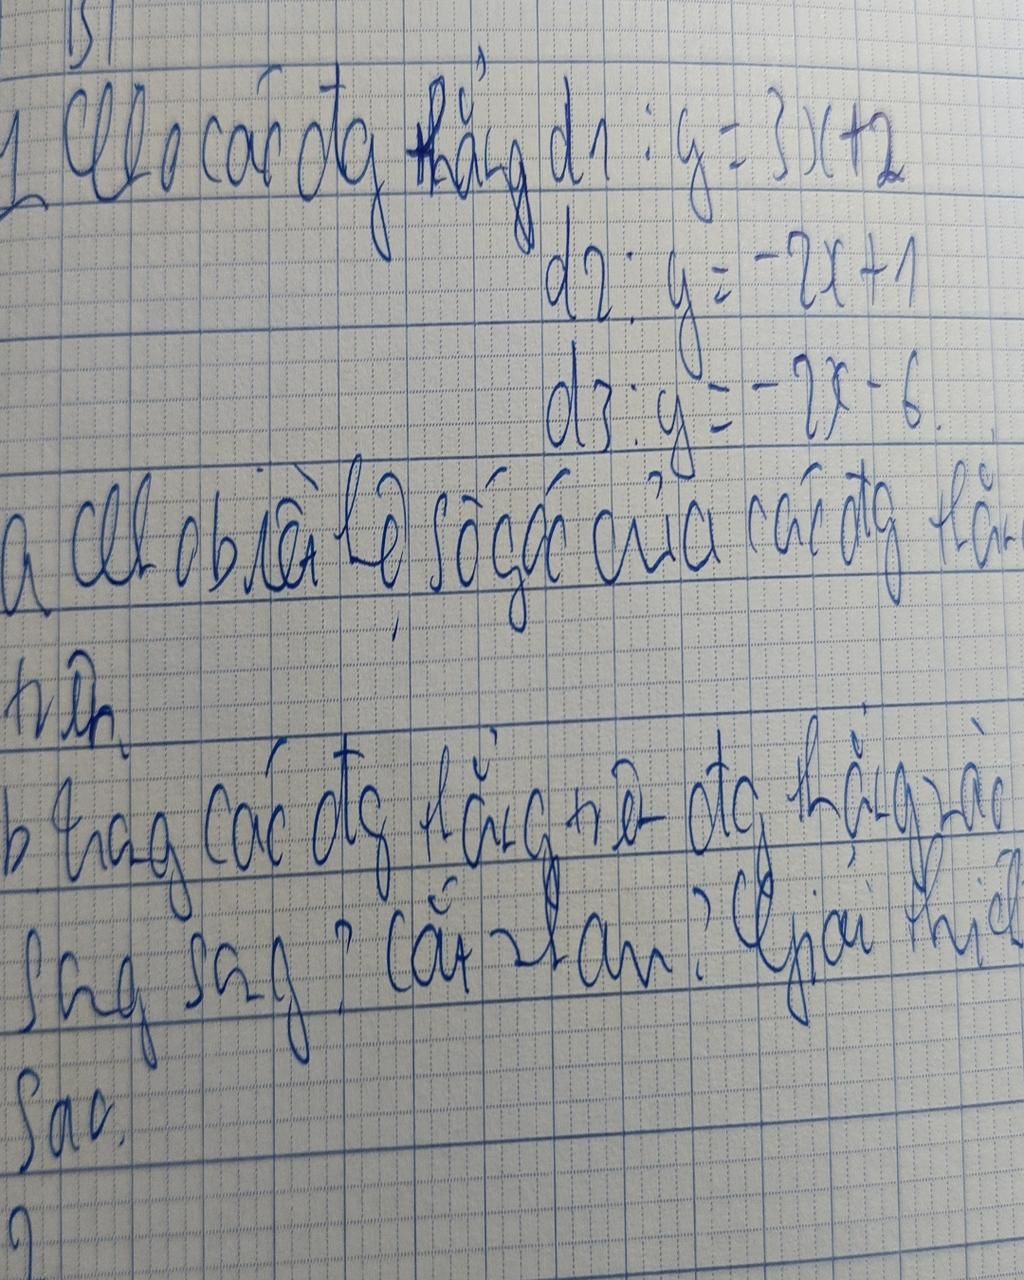 B1
1 Cho các đg thẳng d1 : y = 3x + 2
d2 : y = -2x + 1
d3 : y = -2x - 6.
a Cho biết hệ số góc của các đg thẳng
trên.
b Trog các đg thẳng trên đg thẳng nào
sog sog ? cắt nhau ? Giải thích
sao.
2